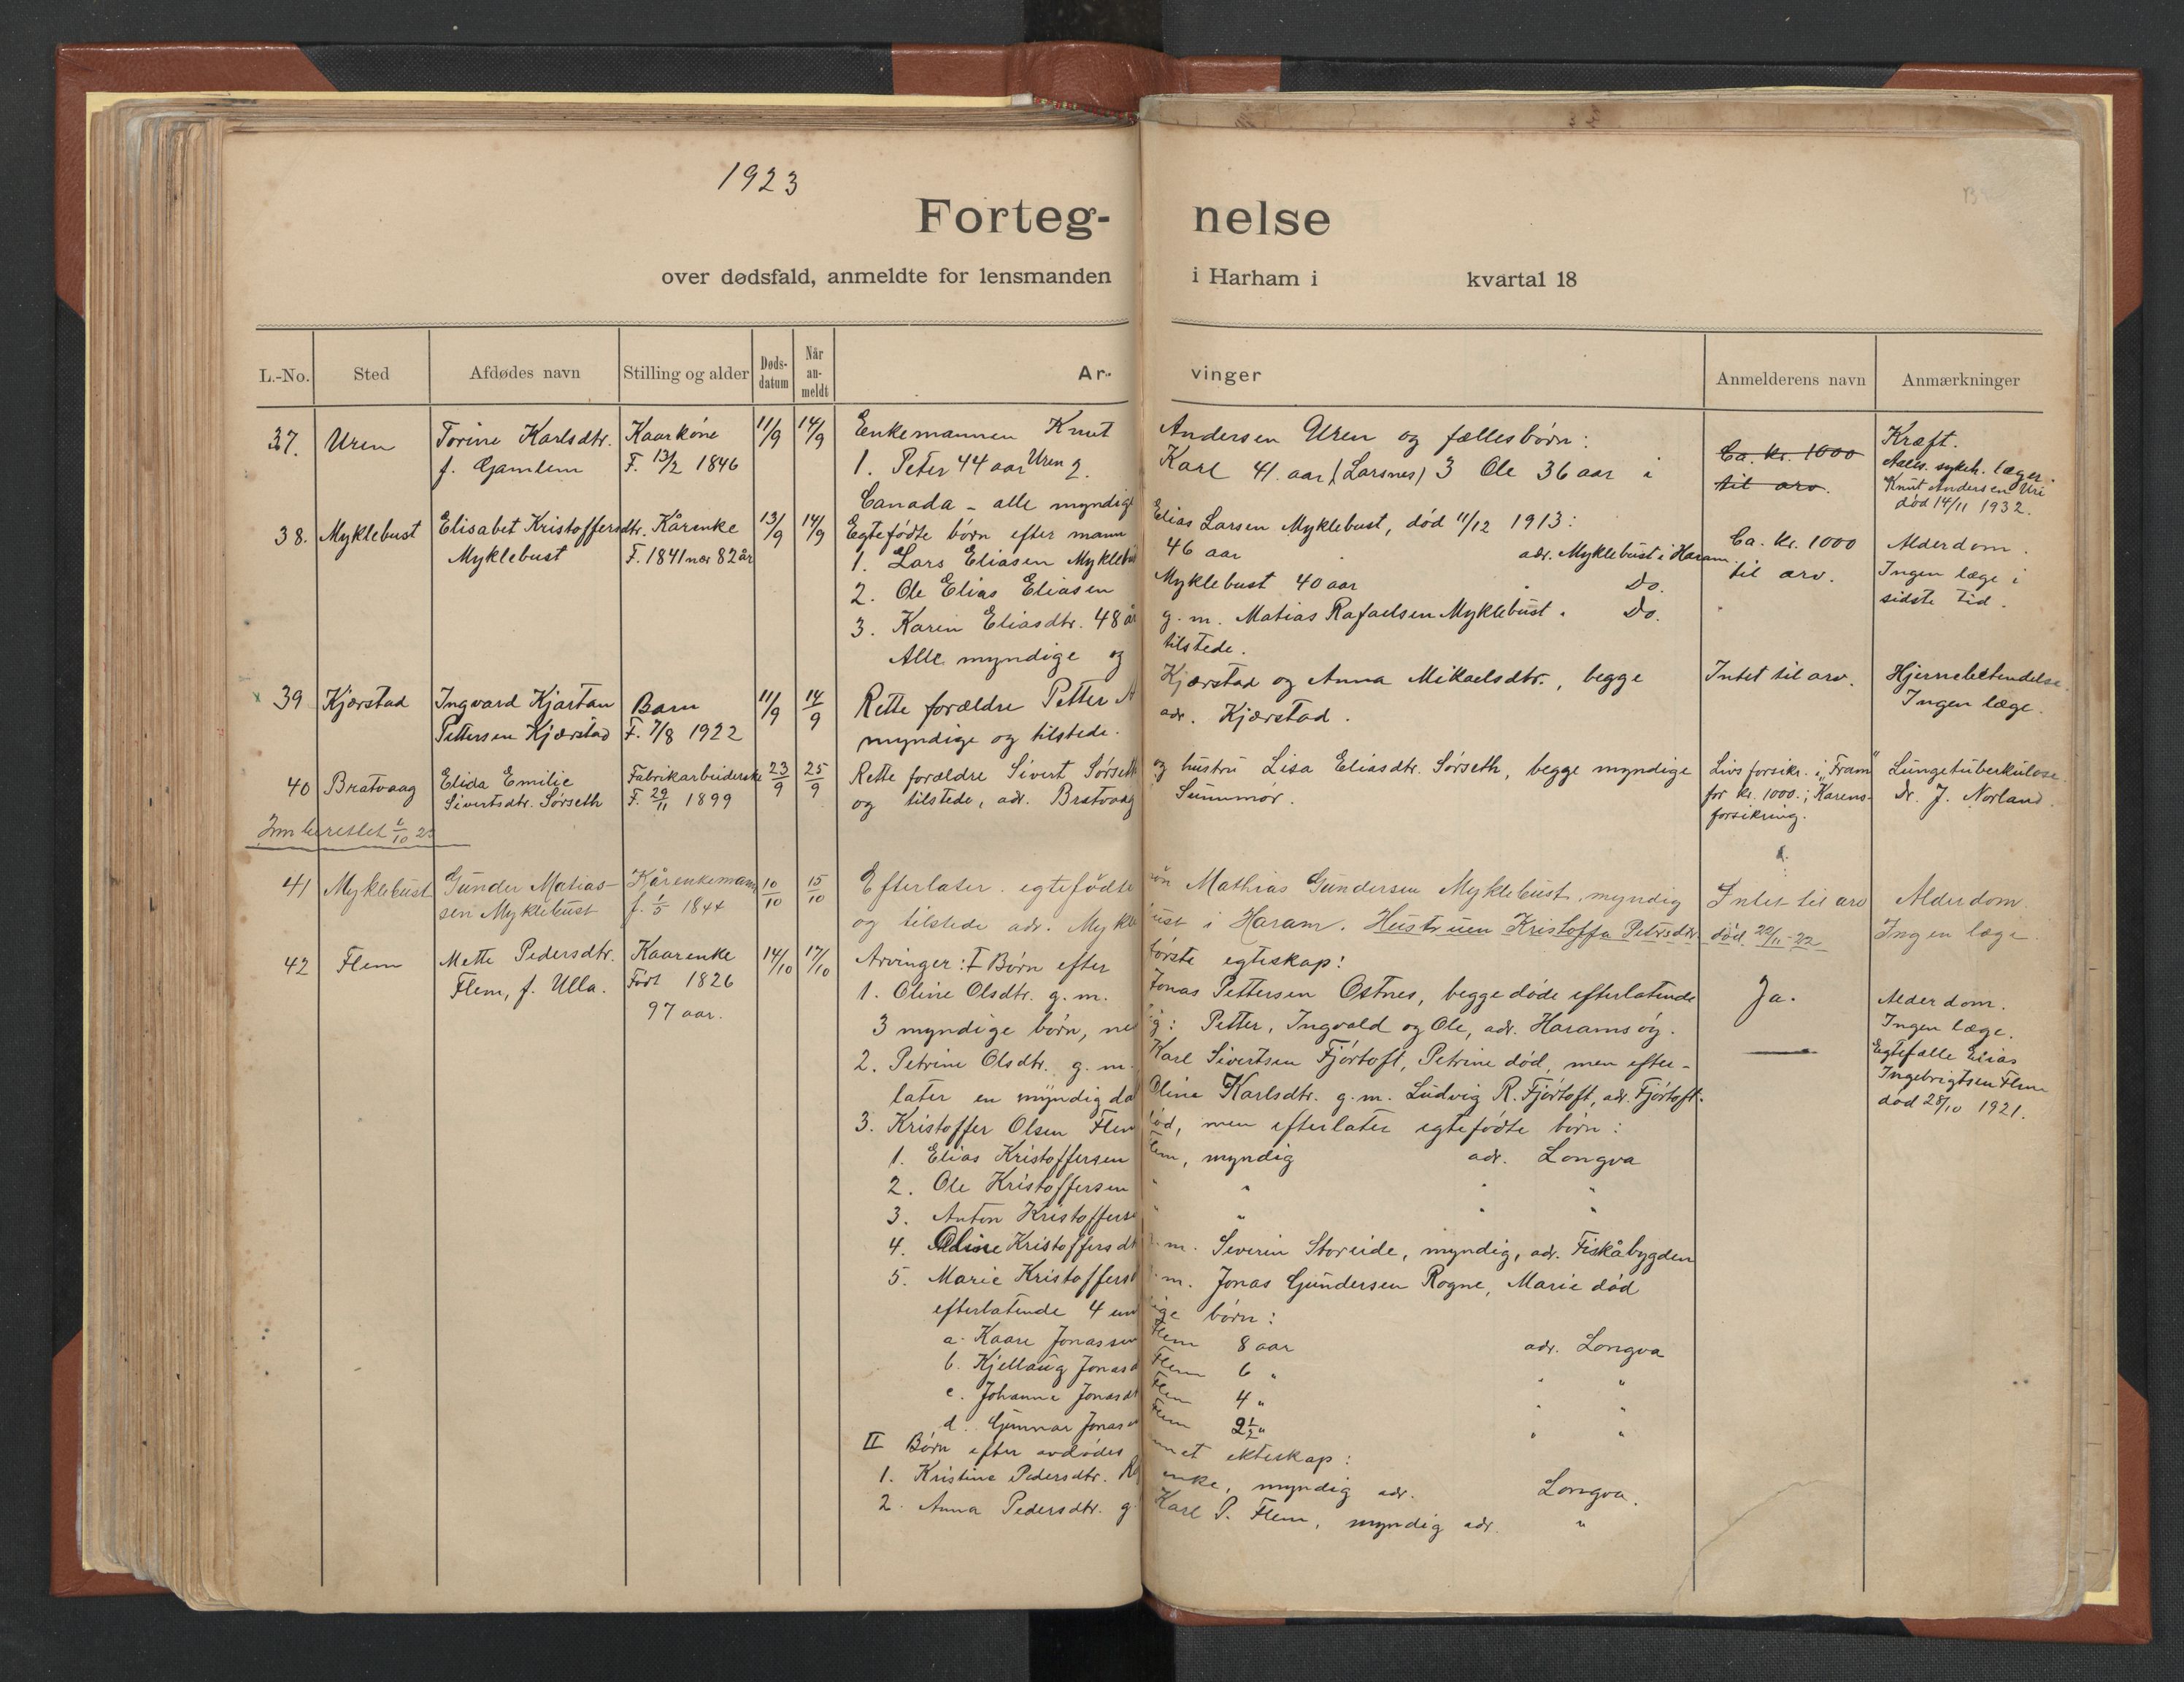 1923
Forteg-nelse
over dødsfald, anmeldte for lensmanden i Harham i kvartal 18
L.-No. Sted Afdødes navn Stilling og alder Døds-datum Når an-meldt Ar-vinger Anmelderens navn Anmærkninger
37. Uren Torine Karlsdtr. Kaarkone 11/9 14/9 Enkemannen Knut Andersen Uren og fællesbørn: Ca. kr. 1000 Kræft.
f. Gamlem F. 13/2 1846 1. Peter 44 aar Uren 2. Karl 41. aar (Larsnes) 3 Ole 36 aar i til arv. Aales. sykeh. læger.
Canada - alle myndig Knut Andersen Uri
død 14/11 1932.
38. Myklebust Elisabet Kristoffersdtr. Kårenke 13/9 14/9 Egtefødte børn efter mann Elias Larsen Myklebust, død 11/12 1913: Ca. kr. 1000 Alderdom.
Myklebust F. 1841 nær 82 år 1. Lars Eliasen Myklebu 46 aar adr. Myklebust i Haram. til arv. Ingen læge i
2. Ole Elias Eliasen Myklebust 40 aar Do. sidste tid.
3. Karen Eliasdtr. 48 år g. m. Matias Rafaelsen Myklebust. Do.
Alle myndige og tilstede.
39 Kjærstad Ingvard Kjartan Barn 11/9 14/9 Rette forældre Petter A Kjærstad og Anna Mikaelsdtr., begge Intet til arv. Hjernebetendelse.
Pettersen Kjærstad F. 7/8 1922 myndige og tilstede. adr. Kjærstad. Ingen læge.
40 Bratvaag Elida Emilie Fabrikarbeiderske 23/9 25/9 Rette forældre Sivert Sørseth og hustru Lisa Eliasdtr. Sørseth, begge myndige Livsforsikr. i "Fram" Lungetuberkulose.
Sivertsdtr. Sørseth F. 29/11 1899 og tilstede, adr. Bratvaag Sunnmør. for kr. 1000.; Karens- Dr. J. Norland.
forsikring.
Innberettet /10 23
41 Myklebust Gunder Matias- Kårenkemann 10/10 15/10 Efterlater egtefødte søn Mathias Gundersen Myklebust, myndig Intet til arv Alderdom.
sen Myklebust f. 1/5 1844 og tilstede adr. Mykle bust i Haram. Hustruen Kristoffa Petrsdtr. død 22/11-22 Ingen læge.
42 Flem Mette Pedersdtr. Kaarenke 14/10 17/10 Arvinger: I Børn efter første egteskap:
Flem, f. Ulla. Født 1826 1. Oline Olsdtr. g. m. Jonas Pettersen Ostnes, begge døde efterlatende Ja. Alderdom.
97 aar. 3 myndige børn, ne ig: Petter, Ingvald og Ole, adr. Haramsøy. Ingen læge.
2. Petrine Olsdtr. g. m. Karl Sivertsen Fjørtoft, Petrine død, men efter- Egtefælle Elias
later en myndig da Oline Karlsdtr. g. m. Ludvig R. Fjørtoft, adr. Fjørtoft. Ingebrigtsen Flem
3. Kristoffer Olsen Flem død, men efterlater egtefødte børn: død 28/10 1921.
1. Elias Kristoffersen Flem, myndig adr. Longva
2. Ole Kristoffersen " " " "
3. Anton Kristofferse " " " "
4. Oline Kristoffersdt g. m. Severin Storeide, myndig, adr. Fiskåbygden
5. Marie Kristoffersd g. m. Jonas Gundersen Rogne, Marie død
efterlatende 4 um ige børn:
a. Kaare Jonassen Flem 8 aar adr. Longva
b. Kjellaug Jonasd Flem 6 " " "
c. Johanne Jonasdt Flem 4 " " "
d. Gunnar Jonas Flem 2 1/2 " " "
II Børn efter avdødes annet ekteskap:
1. Kristine Pedersdtr. enke, myndig adr. Longva.
2. Anna Pedersdtr. g Karl P. Flem, myndig adr. "